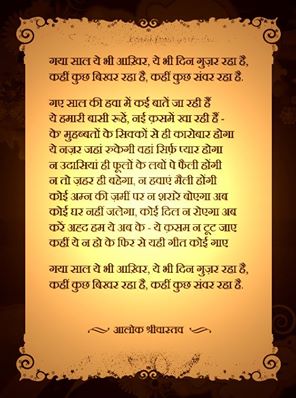 गया साल ये भी आख़िर, ये भी दिन गुज़र रहा है,
कहीं कुछ बिखर रहा है, कहीं कुछ संवर रहा है.
गए साल की हवा में कई बातें जा रही हैं
ये हमारी बासी रूहें, नई क़समें खा रही हैं -
के मुहब्बतों के सिक्कों से ही कारोबार होगा
ये नज़र जहां रुकेगी वहां सिर्फ़ प्यार होगा
न उदासियां ही फूलों के लबों पे फैली होंगी
न तो ज़हर ही बहेगा, न हवाएं मैली होंगी
कोई अम्न की ज़मीं पर न शरारे बोएगा अब
कोई घर नहीं जलेगा, कोई दिल न रोएगा अब
करें अह्द हम ये अब के - ये क़सम न टूट जाए
कहीं ये न हो के फिर से यही गीत कोई गाए
गया साल ये भी आख़िर, ये भी दिन गुज़र रहा है,
कहीं कुछ बिखर रहा है, कहीं कुछ संवर रहा है.
आलोक श्रीवास्तव